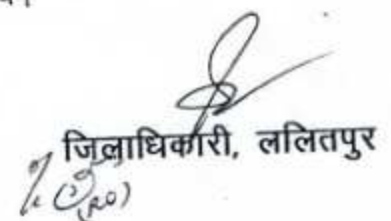 जिलाधिकारी, ललितपुर
(RO)